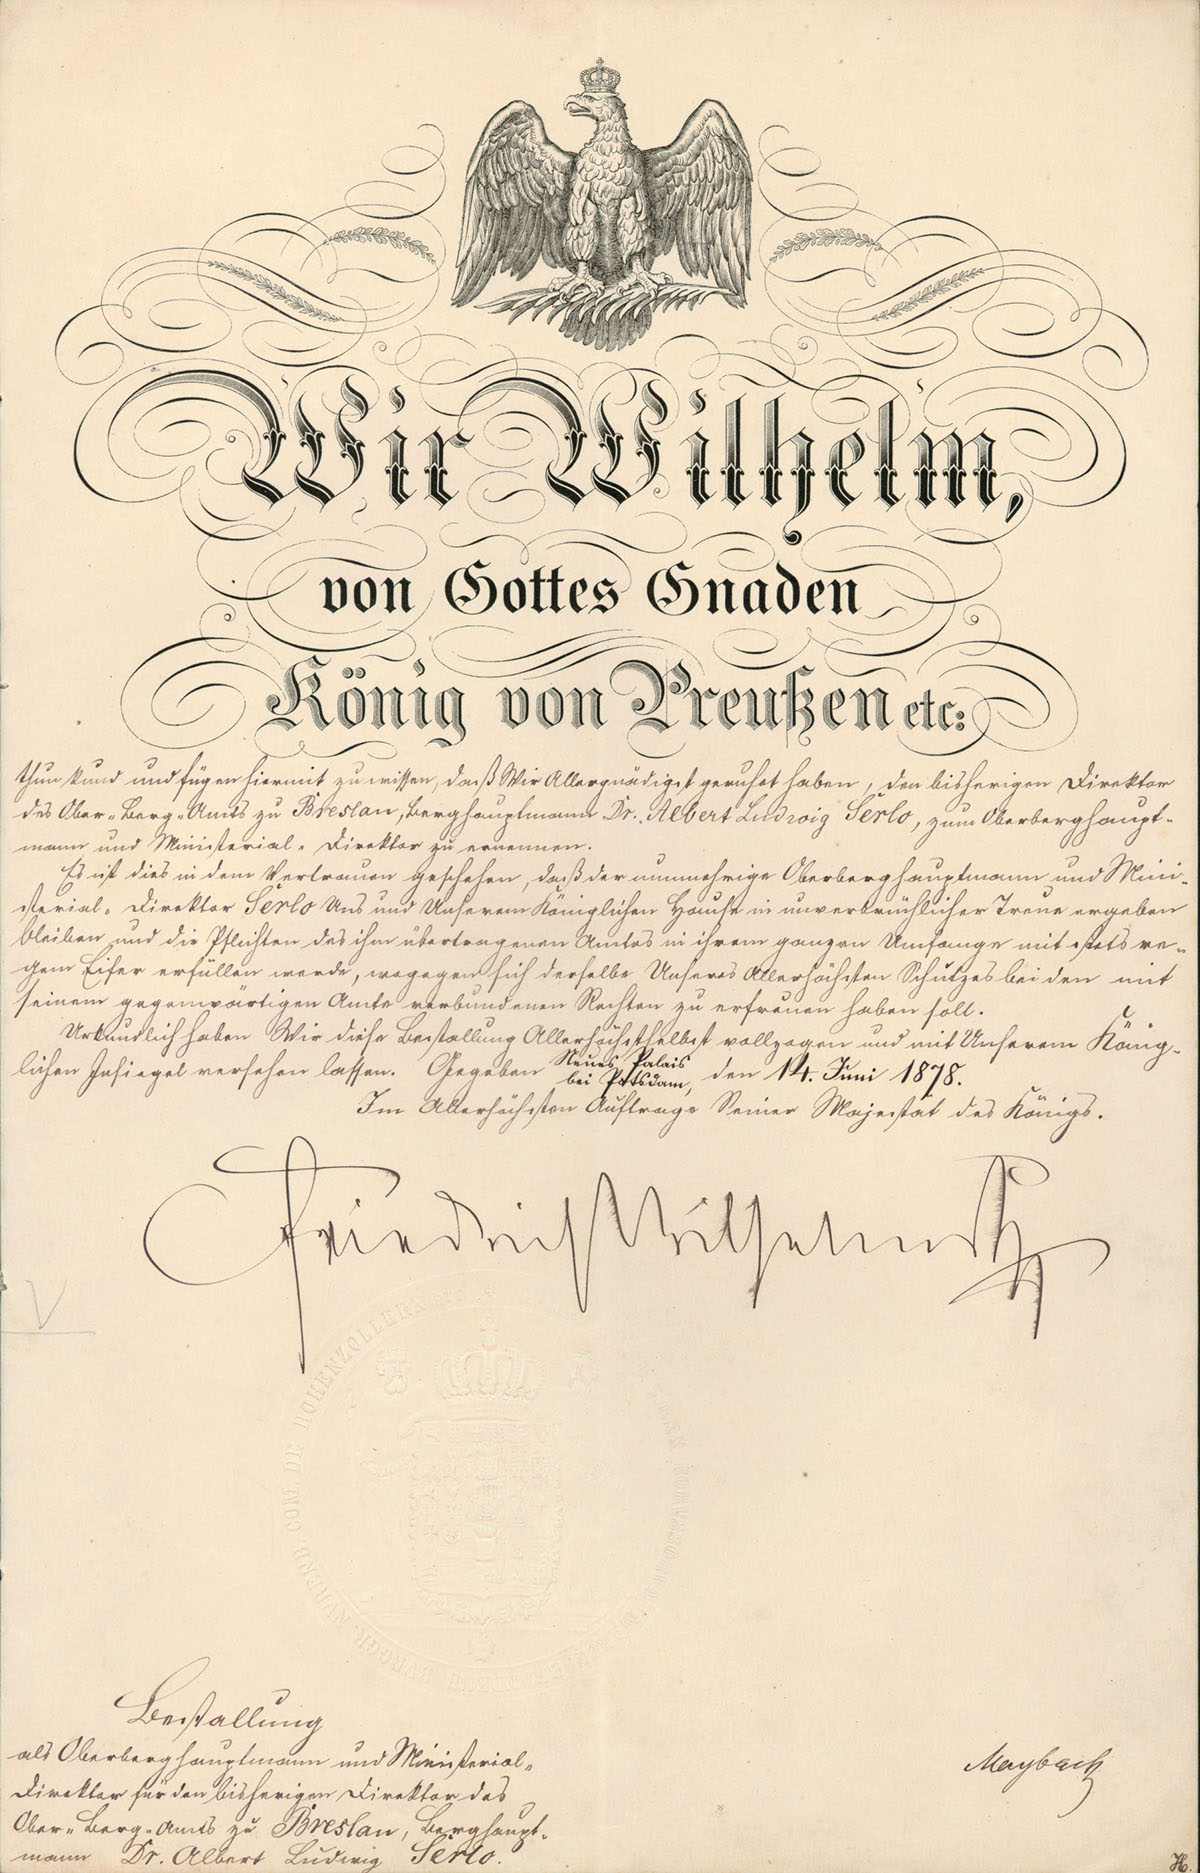 Wir Wilhelm,
von Gottes Gnaden
König von Preußen etc:
thun kund und fügen hiermit zu wissen, daß Wir Allergnädigst geruhet haben, den bisherigen Direktor
des Ober-Berg-Amts zu Breslau, Berghauptmann Dr. Albert Ludwig Serlo, zum Oberberghaupt-
mann und Ministerial-Direktor zu ernennen.
Es ist dies in dem Vertrauen geschehen, daß der nunmehrige Oberberghauptmann und Mini-
sterial-Direktor Serlo Uns und Unserem Königlichen Hause in unverbrüchlicher Treue ergeben
bleiben und die Pflichten des ihm übertragenen Amtes in ihrem ganzen Umfange mit stets re-
gem Eifer erfüllen werde, wogegen sich derselbe Unseres Allerhöchsten Schutzes bei den mit
seinem gegenwärtigen Amte verbundenen Rechten zu erfreuen haben soll.
Urkundlich haben Wir diese Bestallung Allerhöchstselbst vollzogen und mit Unserem König-
lichen Insiegel versehen lassen. Gegeben Neues Palais bei Potsdam, den 14. Juni 1878.
Im Allerhöchsten Auftrage Seiner Majestät des Königs.
Friedrich Wilhelm
V
COM. DE HOHENZOLLERN
BURGGR. NUREMB
Bestallung
als Oberberghauptmann und Ministerial-
Direktor für den bisherigen Direktor des
Ober-Berg-Amts zu Breslau, Berghaupt-
mann Dr. Albert Ludwig Serlo.
Maybach
H.